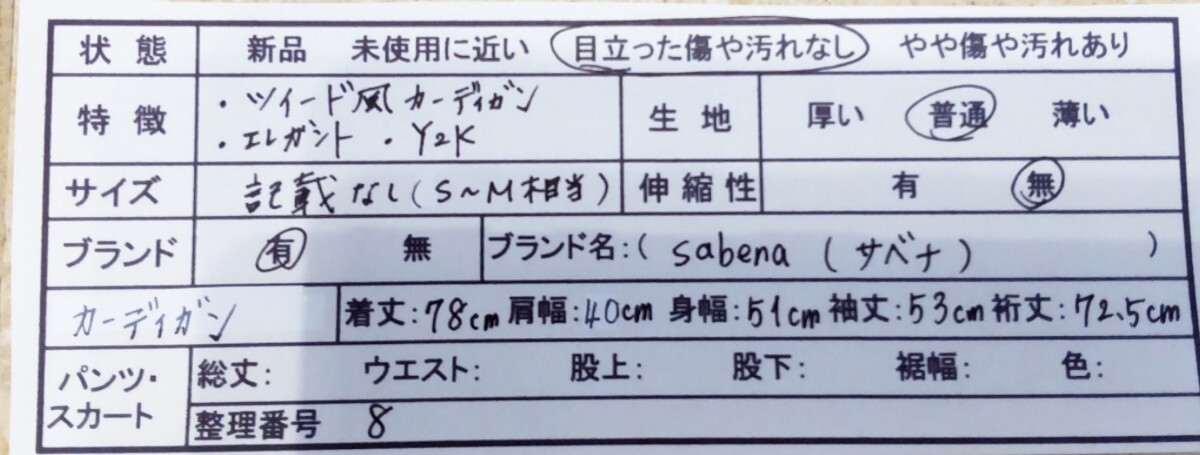 状態 新品 未使用に近い 目立った傷や汚れなし やや傷や汚れあり
特徴 ・ツイード風カーディガン
・エレガント ・Y2K
生地 厚い 普通 薄い
サイズ 記載なし(S~M相当) 伸縮性 有 無
ブランド 有 無 ブランド名:( sabena (サベナ) )
カーディガン 着丈:78cm 肩幅:40cm 身幅:51cm 袖丈:53cm 裄丈:72.5cm
パンツ・スカート 総丈: ウエスト: 股上: 股下: 裾幅: 色:
整理番号 8